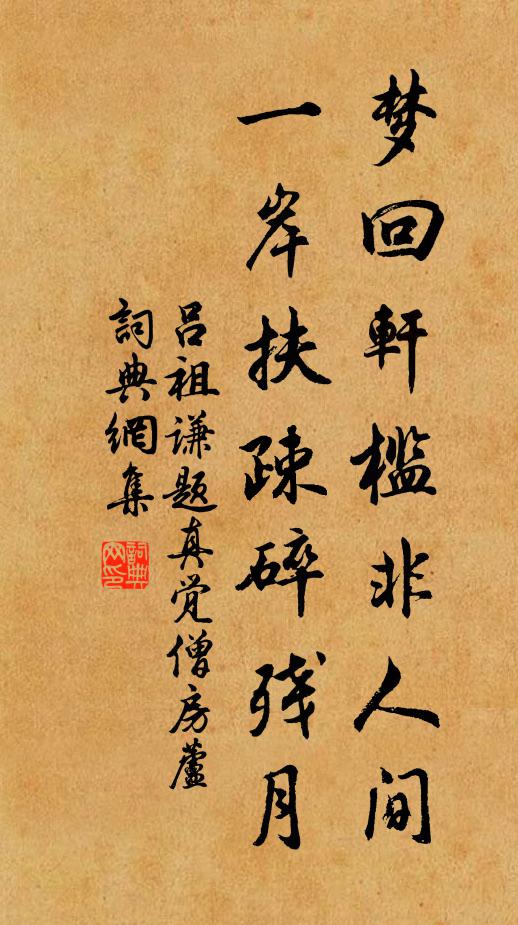 梦回軒檻非人间
一岸扶疎碎残月
吕祖谦题真觉僧房蘆
詞典網集
詞典網印